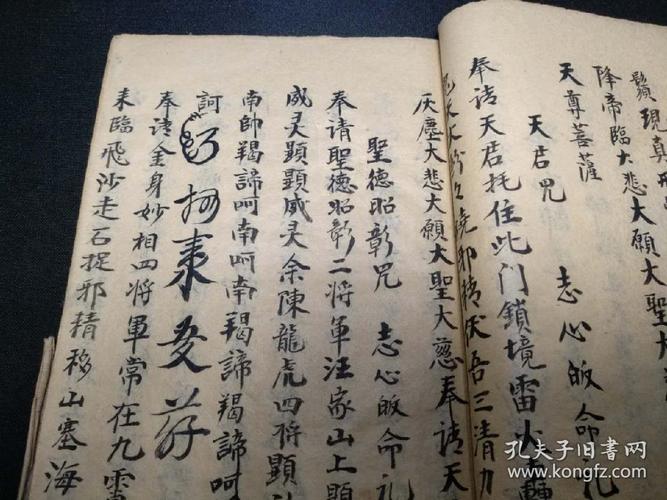 鬚現真
降帝臨大悲大願大聖大
天尊菩薩
天君咒 志心皈命礼
奉请天君托住此门鎖境雷火
燒邪精厌吾三清力
灰塵大悲大願大聖大慈奉请天
聖德昭彰咒 志心皈命礼
奉请聖德昭彰二将軍汪家山上顕
威灵顕顕威灵余陳龍虎四将顕
南帥羯諦呵南呵南羯諦羯諦呵
訶
奉请金身妙相四将軍常在九霄
来臨飛沙走石捉邪精移山塞海
孔夫子旧书网
www.kongfz.com